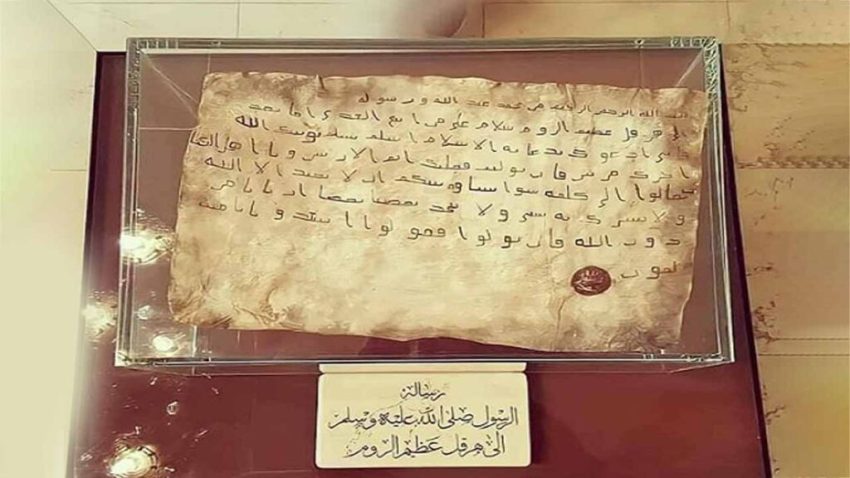 بسم الله الرحمن الرحيم من محمد عبد الله ورسوله
الى هرقل عظيم الروم سلام على من اتبع الهدى اما بعد
فاني ادعوك بدعاية الاسلام اسلم تسلم يوتك الله
اجرك مرتين فان توليت فعليك اثم الاريسين ويا اهل الكتا
تعالوا الى كلمة سوا بيننا وبينكم ان لا نعبد الا الله
ولا نشرك به شيا ولا يتخذ بعضنا بعضا اربابا من
دون الله فان تولوا فقولوا اشهدوا بانا مسـ
لمون
رسالة
الرسول صلى الله عليه وسلم
الى هرقل عظيم الروم